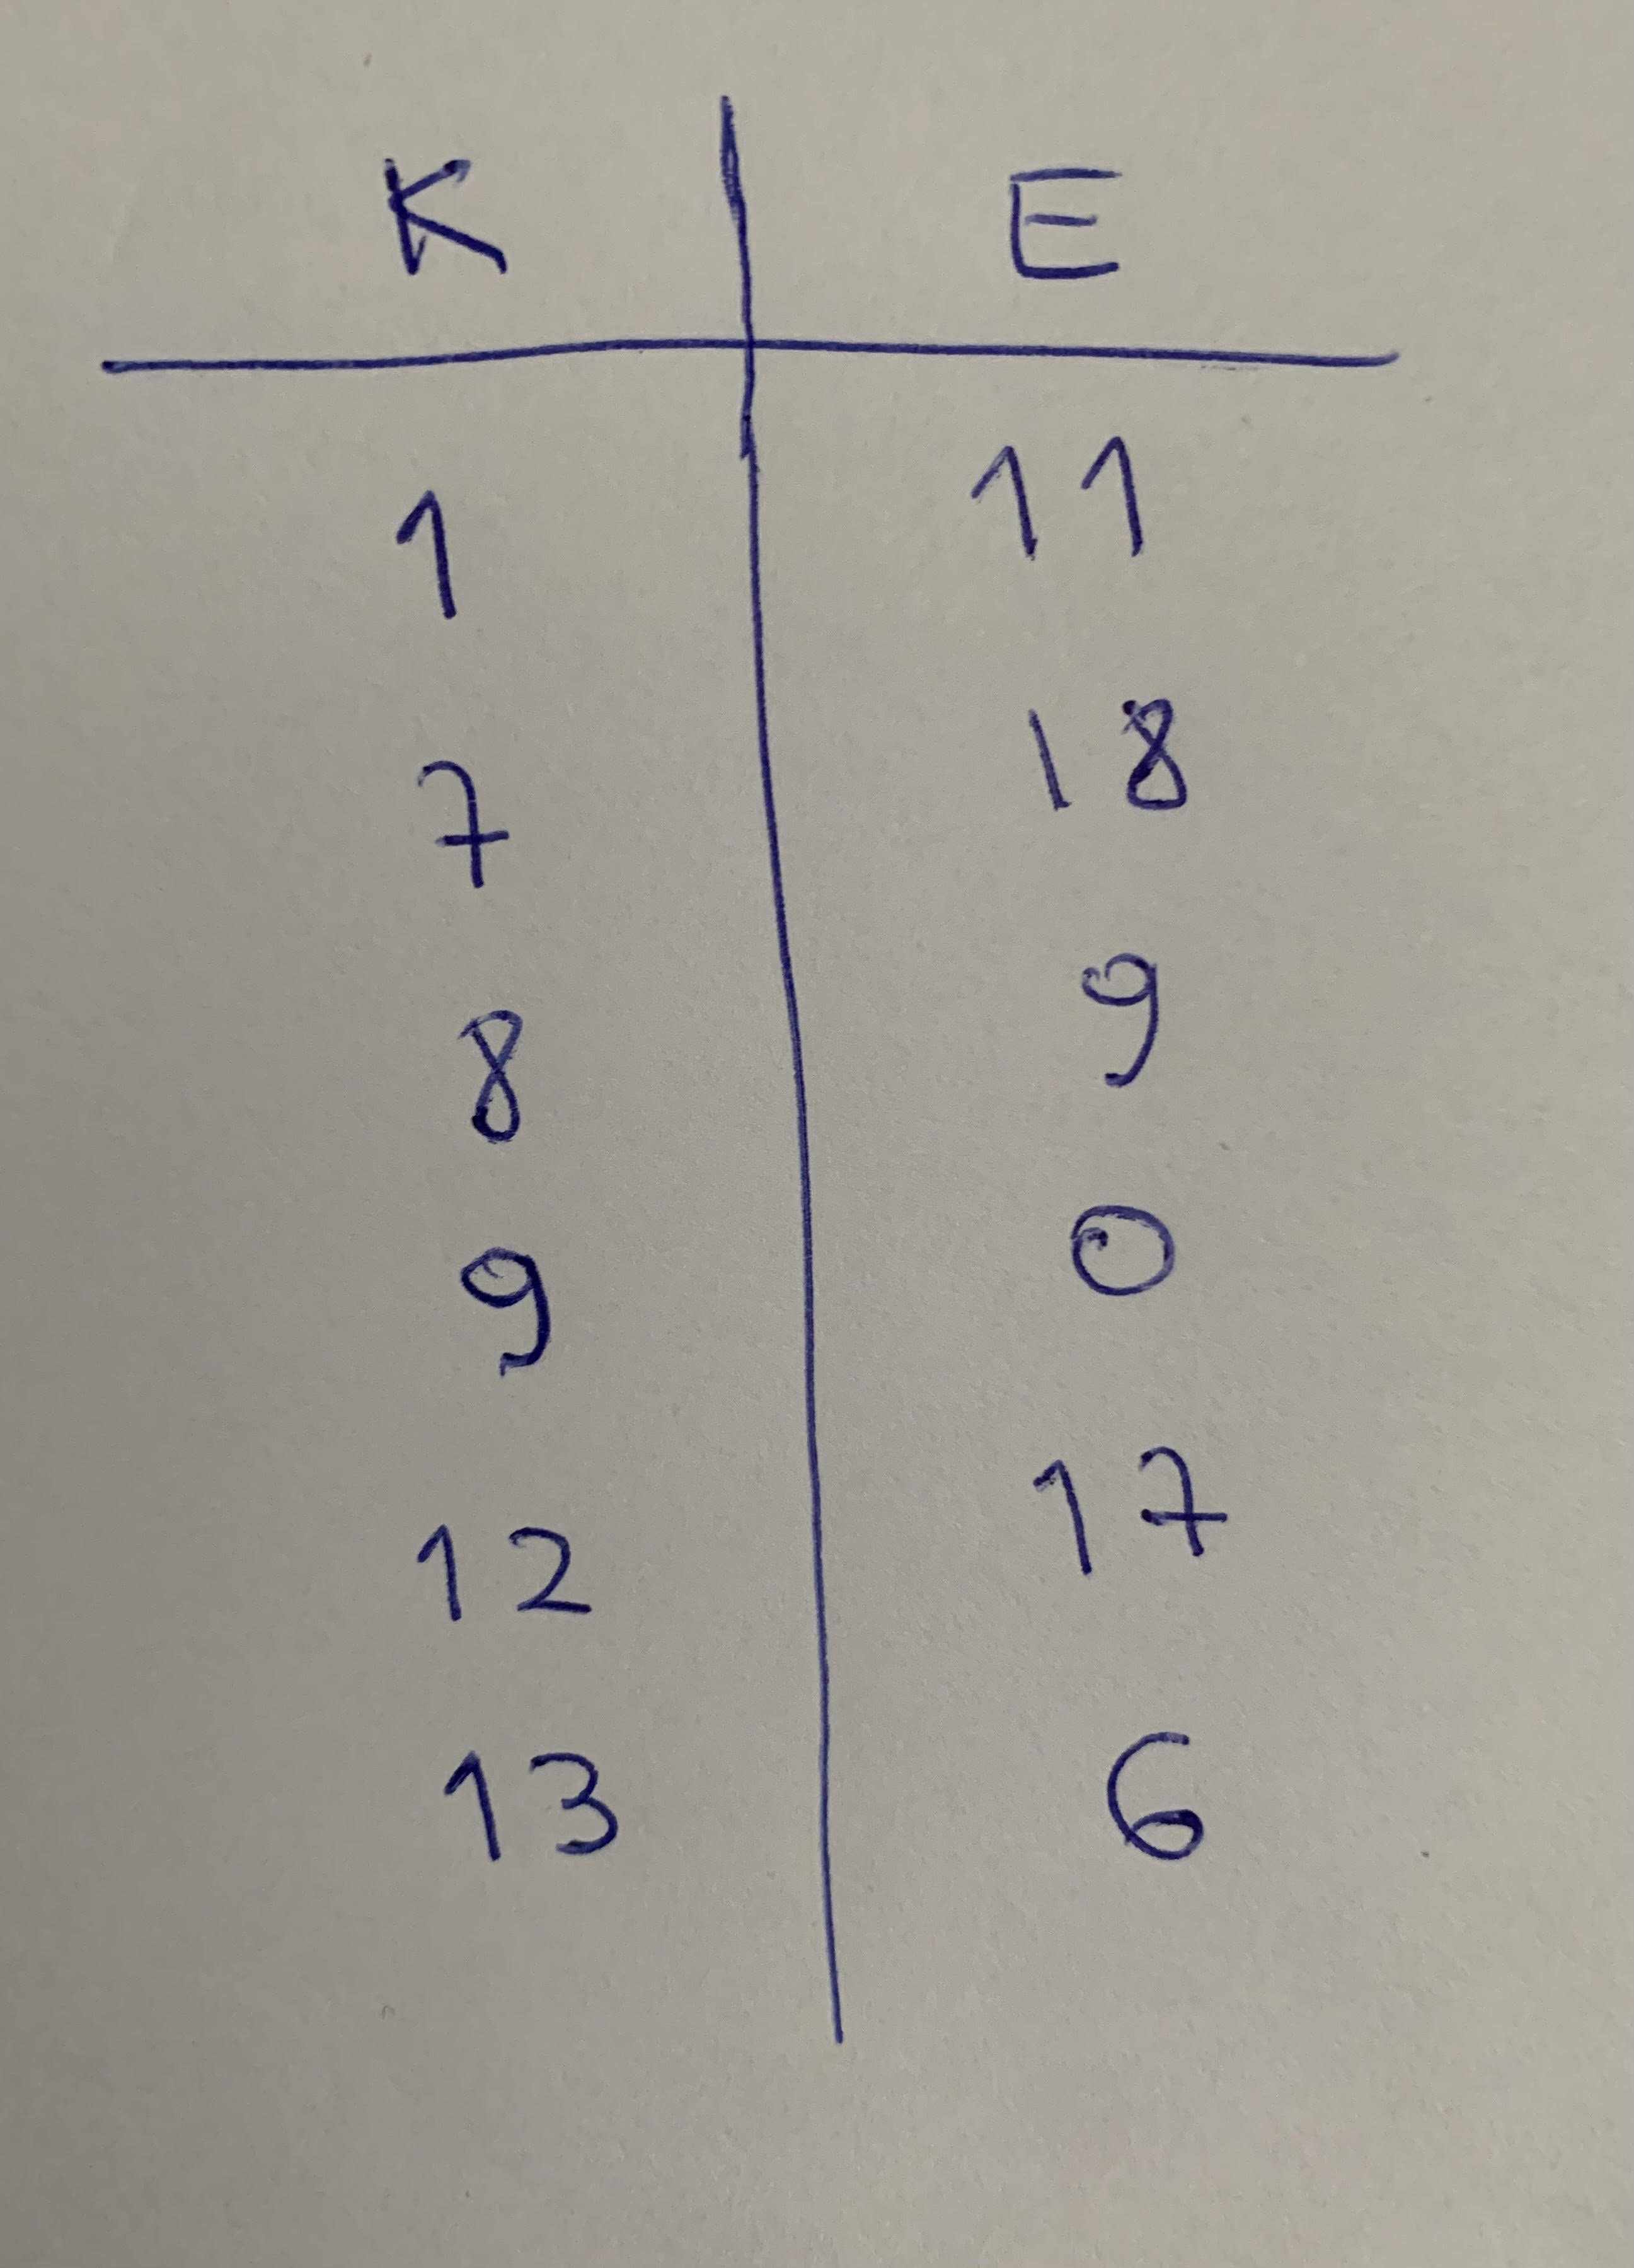 K E
1 11
7 18
8 9
9 0
12 17
13 6